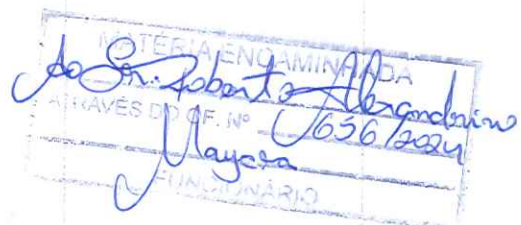 MATÉRIA ENCAMINHADA
Ao Sr. Roberto Alexandrino
ATRAVÉS DO OF. Nº 656/2024
Mayara
FUNCIONÁRIO